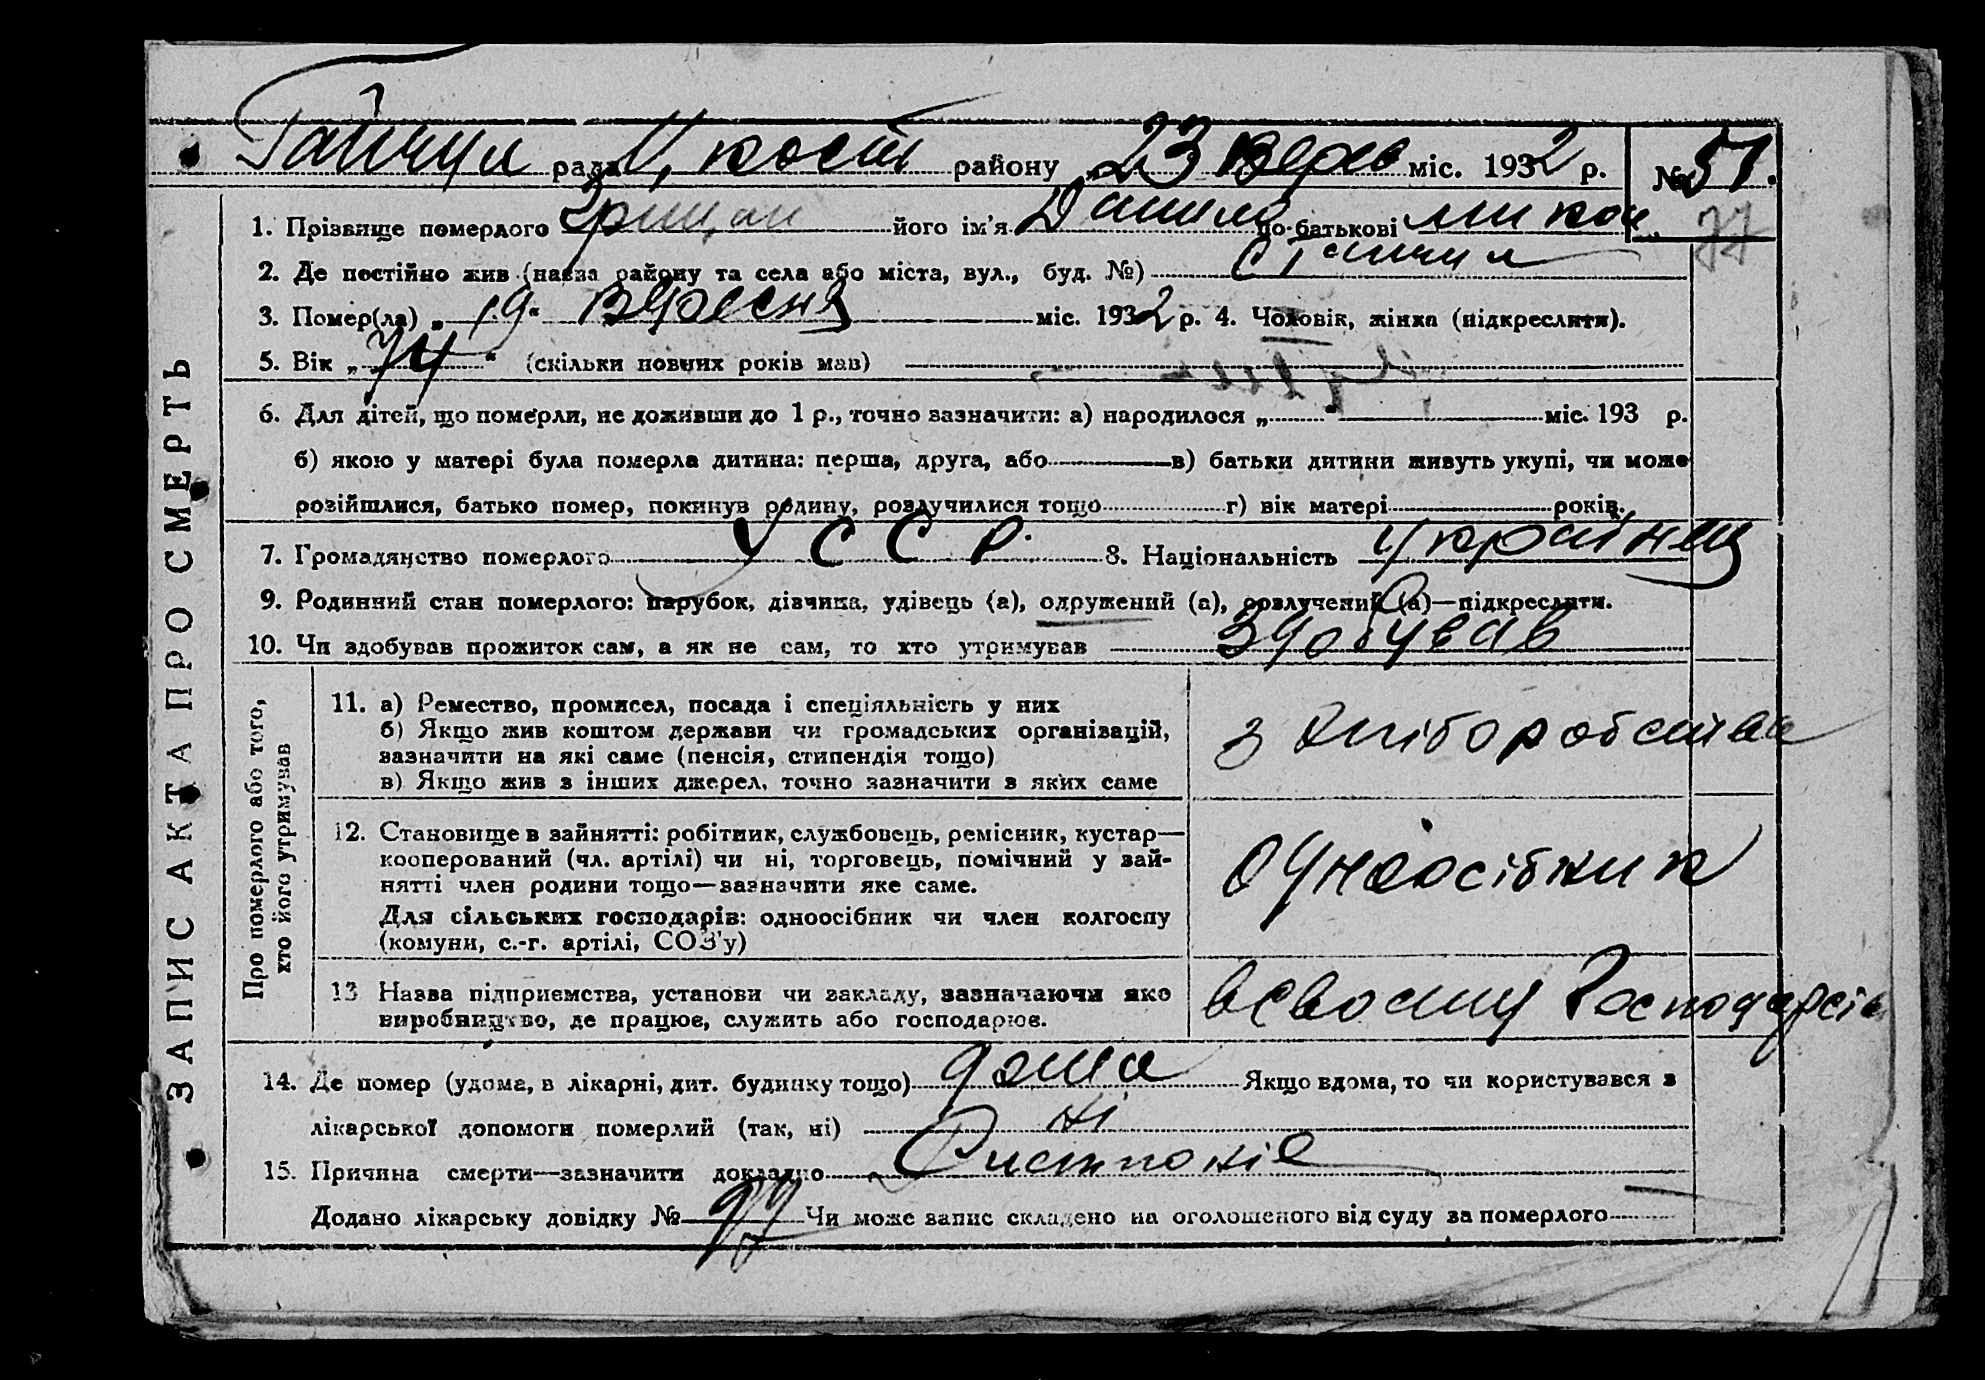 Гайчул рада, Н, кост району „23 верес міс. 1932 р. № 51.
1. Прізвище померлого Грицай його ім'я Данило по-батькові микол. 77
2. Де постійно жив (назва району та села або міста, вул., буд. №) с Гайчул
3. Помер(ла) „19“ вересня міс. 1932 р. 4. Чоловік, жінка (підкреслити).
5. Вік „74“ (скільки повних років мав)
6. Для дітей, що померли, не доживши до 1 р., точно зазначити: а) народилося „ “ міс. 193 р.
б) якою у матері була померла дитина: перша, друга, або в) батьки дитини живуть укупі, чи може
розійшлися, батько помер, покинув родину, розлучилися тощо г) вік матері років.
7. Громадянство померлого УССР. 8. Національність українец
9. Родинний стан померлого: парубок, дівчина, удівець (а), одружений (а), розлучений (а)—підкреслити.
10. Чи здобував прожиток сам, а як не сам, то хто утримував здобував
ЗАПИС АКТА ПРО СМЕРТЬ
Про померлого або того,
хто його утримував
11. а) Ремество, промисел, посада і спеціяльність у них
б) Якщо жив коштом держави чи громадських організацій,
зазначити на які саме (пенсія, стипендія тощо)
в) Якщо жив з інших джерел, точно зазначити з яких саме
з хліборобства
12. Становище в зайнятті: робітник, службовець, ремісник, кустар—
кооперований (чл. артілі) чи ні, торговець, помічний у зай-
нятті член родини тощо—зазначити яке саме.
Для сільських господарів: одноосібник чи член колгоспу
(комуни, с.-г. артілі, СОЗ'у)
одноосібник
13 Назва підприємства, установи чи закладу, зазначаючи яке
виробництво, де працює, служить або господарює.
всвоєму господарстві
14. Де помер (удома, в лікарні, дит. будинку тощо) дома Якщо вдома, то чи користувався з
лікарської допомоги померлий (так, ні) ні
15. Причина смерти—зазначити докладно
Додано лікарську довідку № 97 Чи може запис складено на оголошеного від суду за померлого